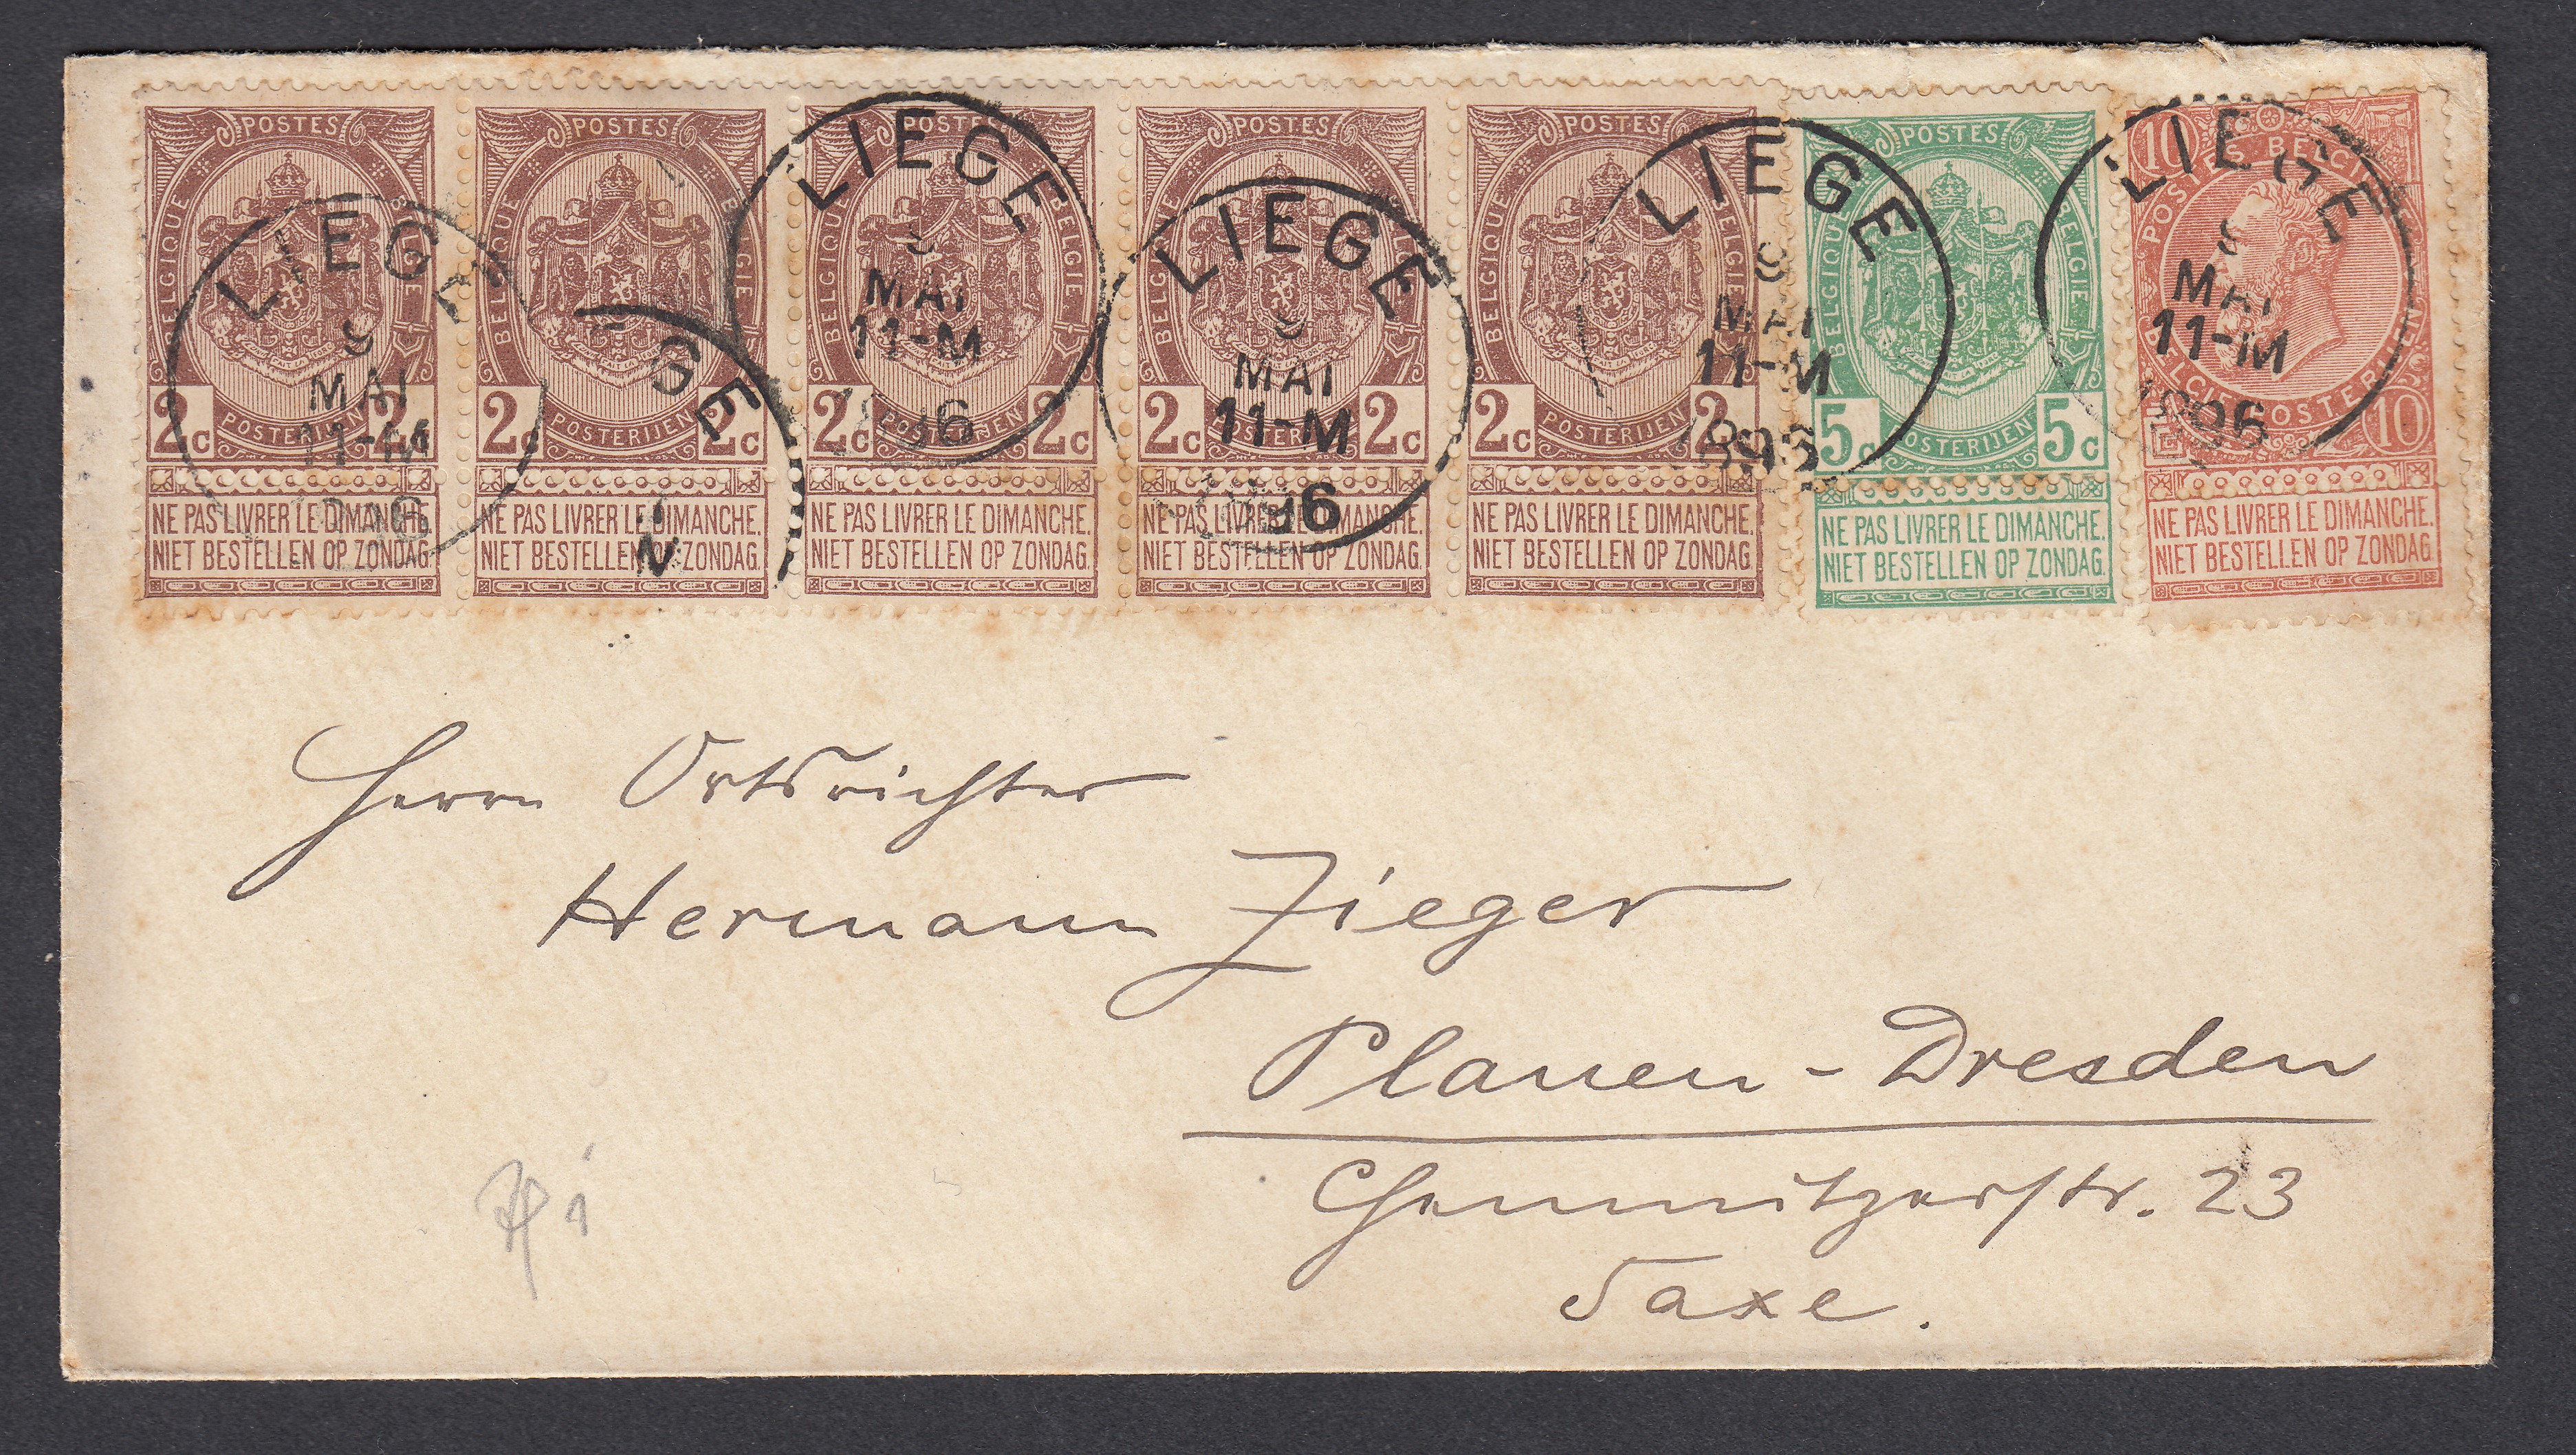 POSTES POSTES POSTES POSTES POSTES POSTES 10
BELGIQUE BELGIE BELGIQUE BELGIE BELGIQUE BELGIE BELGIQUE BELGIE BELGIQUE BELGIE BELGIQUE BELGIE POSTES BELGIQUE
2c 2c 2c 2c 2c 2c 2c 2c 2c 2c 5c 5c 10
POSTERIJEN POSTERIJEN POSTERIJEN POSTERIJEN POSTERIJEN POSTERIJEN BELGIE POSTERIJEN
NE PAS LIVRER LE DIMANCHE. NE PAS LIVRER LE DIMANCHE. NE PAS LIVRER LE DIMANCHE. NE PAS LIVRER LE DIMANCHE. NE PAS LIVRER LE DIMANCHE. NE PAS LIVRER LE DIMANCHE. NE PAS LIVRER LE DIMANCHE.
NIET BESTELLEN OP ZONDAG. NIET BESTELLEN OP ZONDAG. NIET BESTELLEN OP ZONDAG. NIET BESTELLEN OP ZONDAG. NIET BESTELLEN OP ZONDAG. NIET BESTELLEN OP ZONDAG. NIET BESTELLEN OP ZONDAG.
LIEGE
9
MAI
11-M
LIEGE
MAI
11-M
LIEGE
9
MAI
11-M
LIEGE
MAI
11-M
LIEGE
MAI
11-M
1896
Herrn Ortsrichter
Hermann Zieger
Plauen-Dresden
Chemnitzerstr. 23
Saxe.